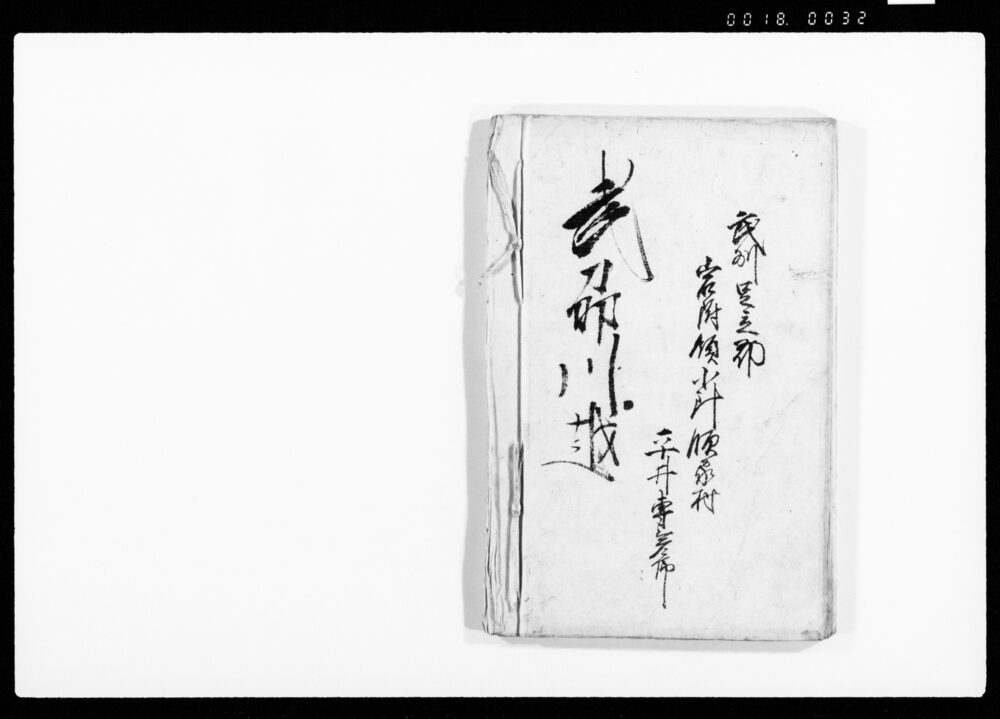 0018. 0032
武州足立郡
岩附領小針領家村
平井專
武刕川越